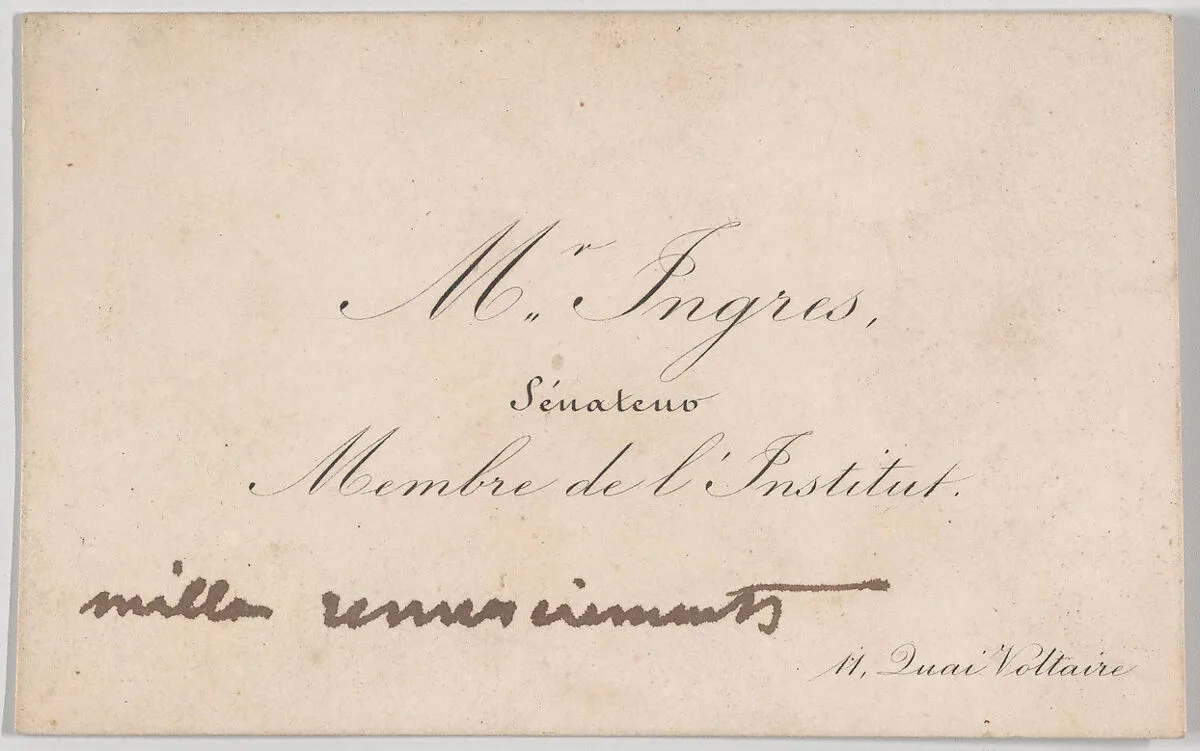 Mr„ Ingres,
Sénateur
Membre de l'Institut.
mille remerciements
11, Quai Voltaire